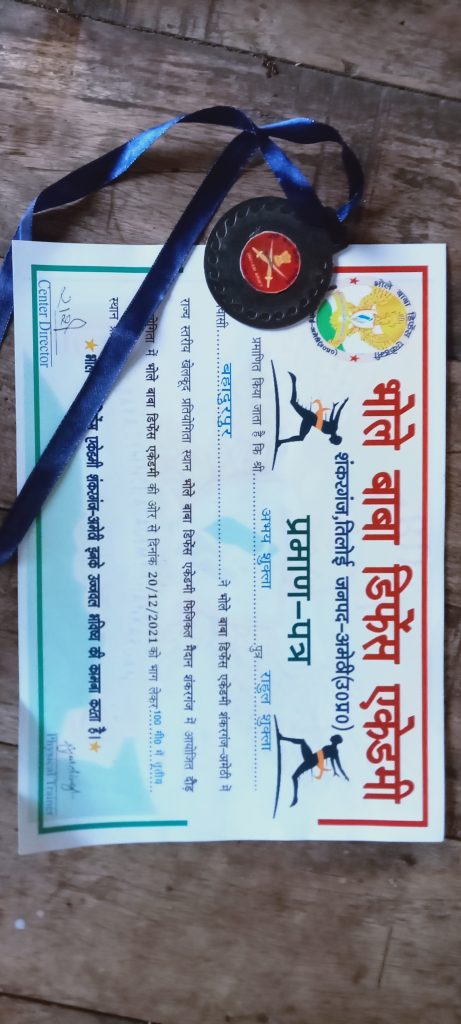 भोले बाबा डिफेंस एकेडमी
शंकरगंज,तिलोई जनपद-अमेठी(उ०प्र०)
भोले बाबा डिफेंस एकेडमी
प्रमाण-पत्र
प्रमाणित किया जाता है कि श्री. अभय शुक्ला पुत्र राहुल शुक्ला
बहादुरपुर ने भोले बाबा डिफेंस एकेडमी शंकरगंज-अमेठी में
राज्य स्तरीय खेलकूद प्रतियोगिता स्थान भोले बाबा डिफेंस एकेडमी फिजिकल मैदान शंकरगंज में आयोजित दौड़
में भोले बाबा डिफेंस एकेडमी की ओर से दिनांक 20/12/2021 को भाग लेकर 100 मी० में तृतीय
स्थान
एकेडमी शंकरगंज-अमेठी इनके उज्जवल भविष्य की कामना करता है।
Center Director
Physical Trainer